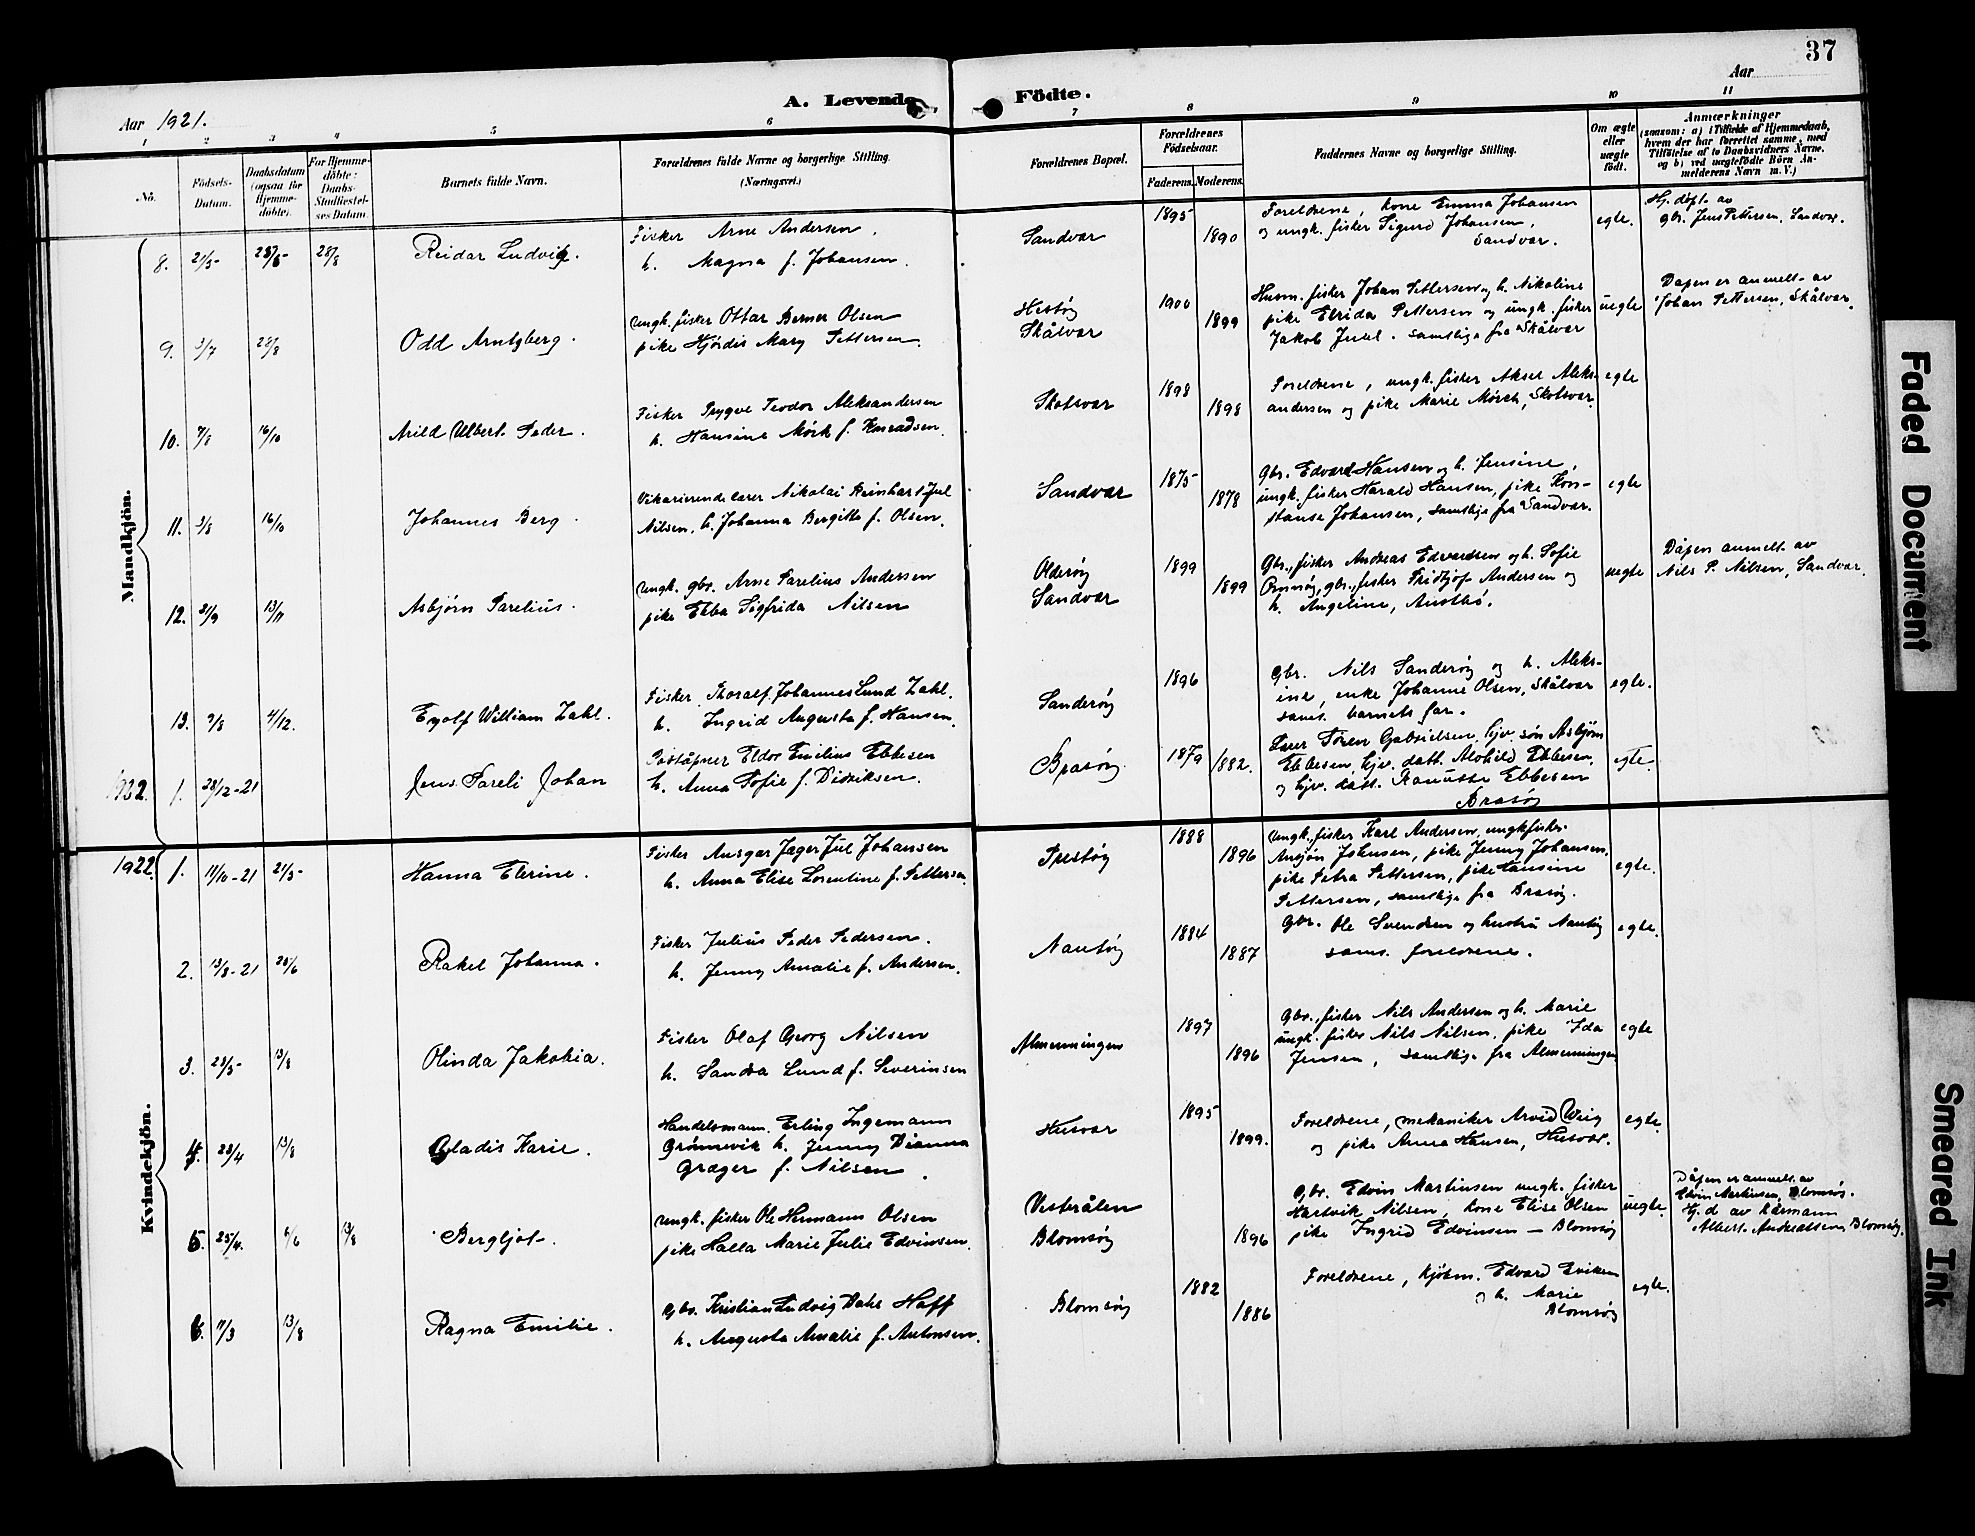 37
Aar 1921.
A. Levende Födte.
Aar
1 2 3 4 5 6 7 8 9 10 11
No.
Födsels-Datum.
Daabsdatum (ogsaa for Hjemme-döbte).
For Hjemme-döbte: Daabs-Stadfæstel-ses Datum.
Barnets fulde Navn.
Forældrenes fulde Navne og borgerlige Stilling.
(Næringsvei.)
Forældrenes Bopæl.
Forældrenes Födselsaar.
Faderens. Moderens.
Faddernes Navne og borgerlige Stilling.
Om ægte eller uægte födt.
Anmærkninger
(saasom: a) i Tilfælde af Hjemmedaab,
hvem der har forrettet samme, med
Tilföielse af to Daabsvidners Navne,
og b) ved uægtefödte Börn An-
melderens Navn m. V.)
Mandkjön.
8. 21/5 28/8 Reidar Ludvig.
Fisker Arne Andersen.
h. Magna f. Johansen.
Sandvær 1895 1890
Foreldrene, kone Emma Johansen
og ungk. fisker Sigurd Johansen,
Sandvær.
egte.
Hj. døpt av
gbr. Jens Pettersen, Sandvær.
9. 3/7 28/8 Odd Arntzberg.
Ungk. fisker Ottar Berner Olsen
pike Hjördis Mary Pettersen.
Hestøy
Skålvær
1900 1899
Husm. fisker Johan Pettersen og h. Nikoline
pike Elrida Pettersen og ungk. fisker
Jakob Juul. samtlige fra Skålvær
uegte
Dåpen er anmelt av
Johan Pettersen, Skålvær.
10. 7/8 16/10 Arild Albert Peder.
Fisker Trygve Teodor Aleksandersen
h. Hansine Mörk f. Konradsen.
Skotsvær 1898 1898
Foreldrene, ungk. fisker Aksel Aleks-
andersen og pike Marie Mörch, Skotsvær.
egte
11. 3/8 16/10 Johannes Berg.
Vikarierende lærer Nikolai Reinhart Jul
Nilsen, h. Johanna Bergitte f. Olsen.
Sandvær 1875 1878
Gbr. Edvard Hansen og h. Jensine,
ungk. fisker Harald Hansen, pike Kon-
stanse Johansen, samtlige fra Sandvær.
egte
12. 3/9 13/11 Asbjörn Parelius.
Ungk. gbr. Arne Parelius Andersen
pike Ebba Sigfrida Nilsen
Olderøy
Sandvær
1899 1899
Gbr., fisker Andreas Edvardsen og h. Sofie
gbr., fisker Fridtjof Andersen og
h. Angeline, Austbö.
uegte
Dåpen anmelt av
Nils P. Nilsen, Sandvær.
13. 9/8 4/12. Eyolf William Zahl.
Fisker Thoralf Johannes Lund Zahl.
h. Ingrid Augusta f. Hansen.
Sanderöy 1896
Gbr. Nils Sanderöy og h. Aleks-
ine, enke Johanne Olsen, Skålvær
samt barnets far.
egte.
1922. 1. 28/12-21 Jens Pareli Johan
Poståpner Eldor Emilius Ebbesen
h. Anna Sofie f. Didriksen.
Brasöy 1879 1882.
Lærer Sören Gabrielsen, hjv. sön Asbjörn
Ebbesen, hjv. datt. Alvhild Ebbesen,
og hjv. datt. Ebbesen
Brasöy
egte.
Kvindekjön.
1922. 1. 11/10-21 21/5 Hanna Elerine.
Fisker Ansgar Jæger Jul Johansen
h. Anna Elise Lorentine f. Pettersen.
Prestöy 1888 1896
Ungk. fisker Karl Andersen, ungk fisker
Johnsen, pike Jenny Johansen,
pike Petra Pettersen, pike Hansine
Pettersen, samtlige fra Brasöy.
egte.
2. 13/8-21 28/6 Rakel Johanna.
Fisker Julius Peder Pedersen.
h. Jenny Amalie f. Andersen.
Nautöy 1884 1887
Gbr. Ole Svendsen og hustru Nautöy
samt foreldrene.
egte.
3. 28/5 13/8 Olinda Jakobia.
Fisker Olaf Georg Nilsen
h. Sandra Lund f. Severinsen
Almenningen 1897 1896
Gbr., fisker Nils Andersen og h. Marie
ungk. fisker Nils Nilsen, pike Ida
Jensen, samtlige fra Almenningen
egte
4. 28/4 13/8 Gladis Karie.
Handelsmann, Erling Ingemann
Grønnevik h. Jenny Dianna
Græger f. Nilsen.
Husvær 1895 1899.
Foreldrene, mekaniker Arvid Weig
og pike Anna Hansen, Husvær.
egte.
5. 25/4. 6/6 13/8 Bergljot.
Ungk. fisker Ole Hermann Olsen
pike Halla Marie Julie Edvinsen.
Vesterålen
Blomsöy
1896
Gbr. Edvin Martinsen ungk. fisker
Hartvik Nilsen, kone Elise Olsen
pike Ingrid Edvinsen - Blomsöy
uegte.
Dåpen er anmelt av
Edvin Martinsen, Blomsöy.
Hj. d. av
Albert Andreassen, Blomsöy.
6. 11/3 13/8 Ragna Emilie.
Gbr. Kristian Ludvig Dahl Hoff
h. Augusta Amalie f. Antonsen.
Blomsöy 1882 1886
Foreldrene, kjöbm. Edvard
og h. Marie
Blomsöy
egte.
Faded Document
Smeared Ink